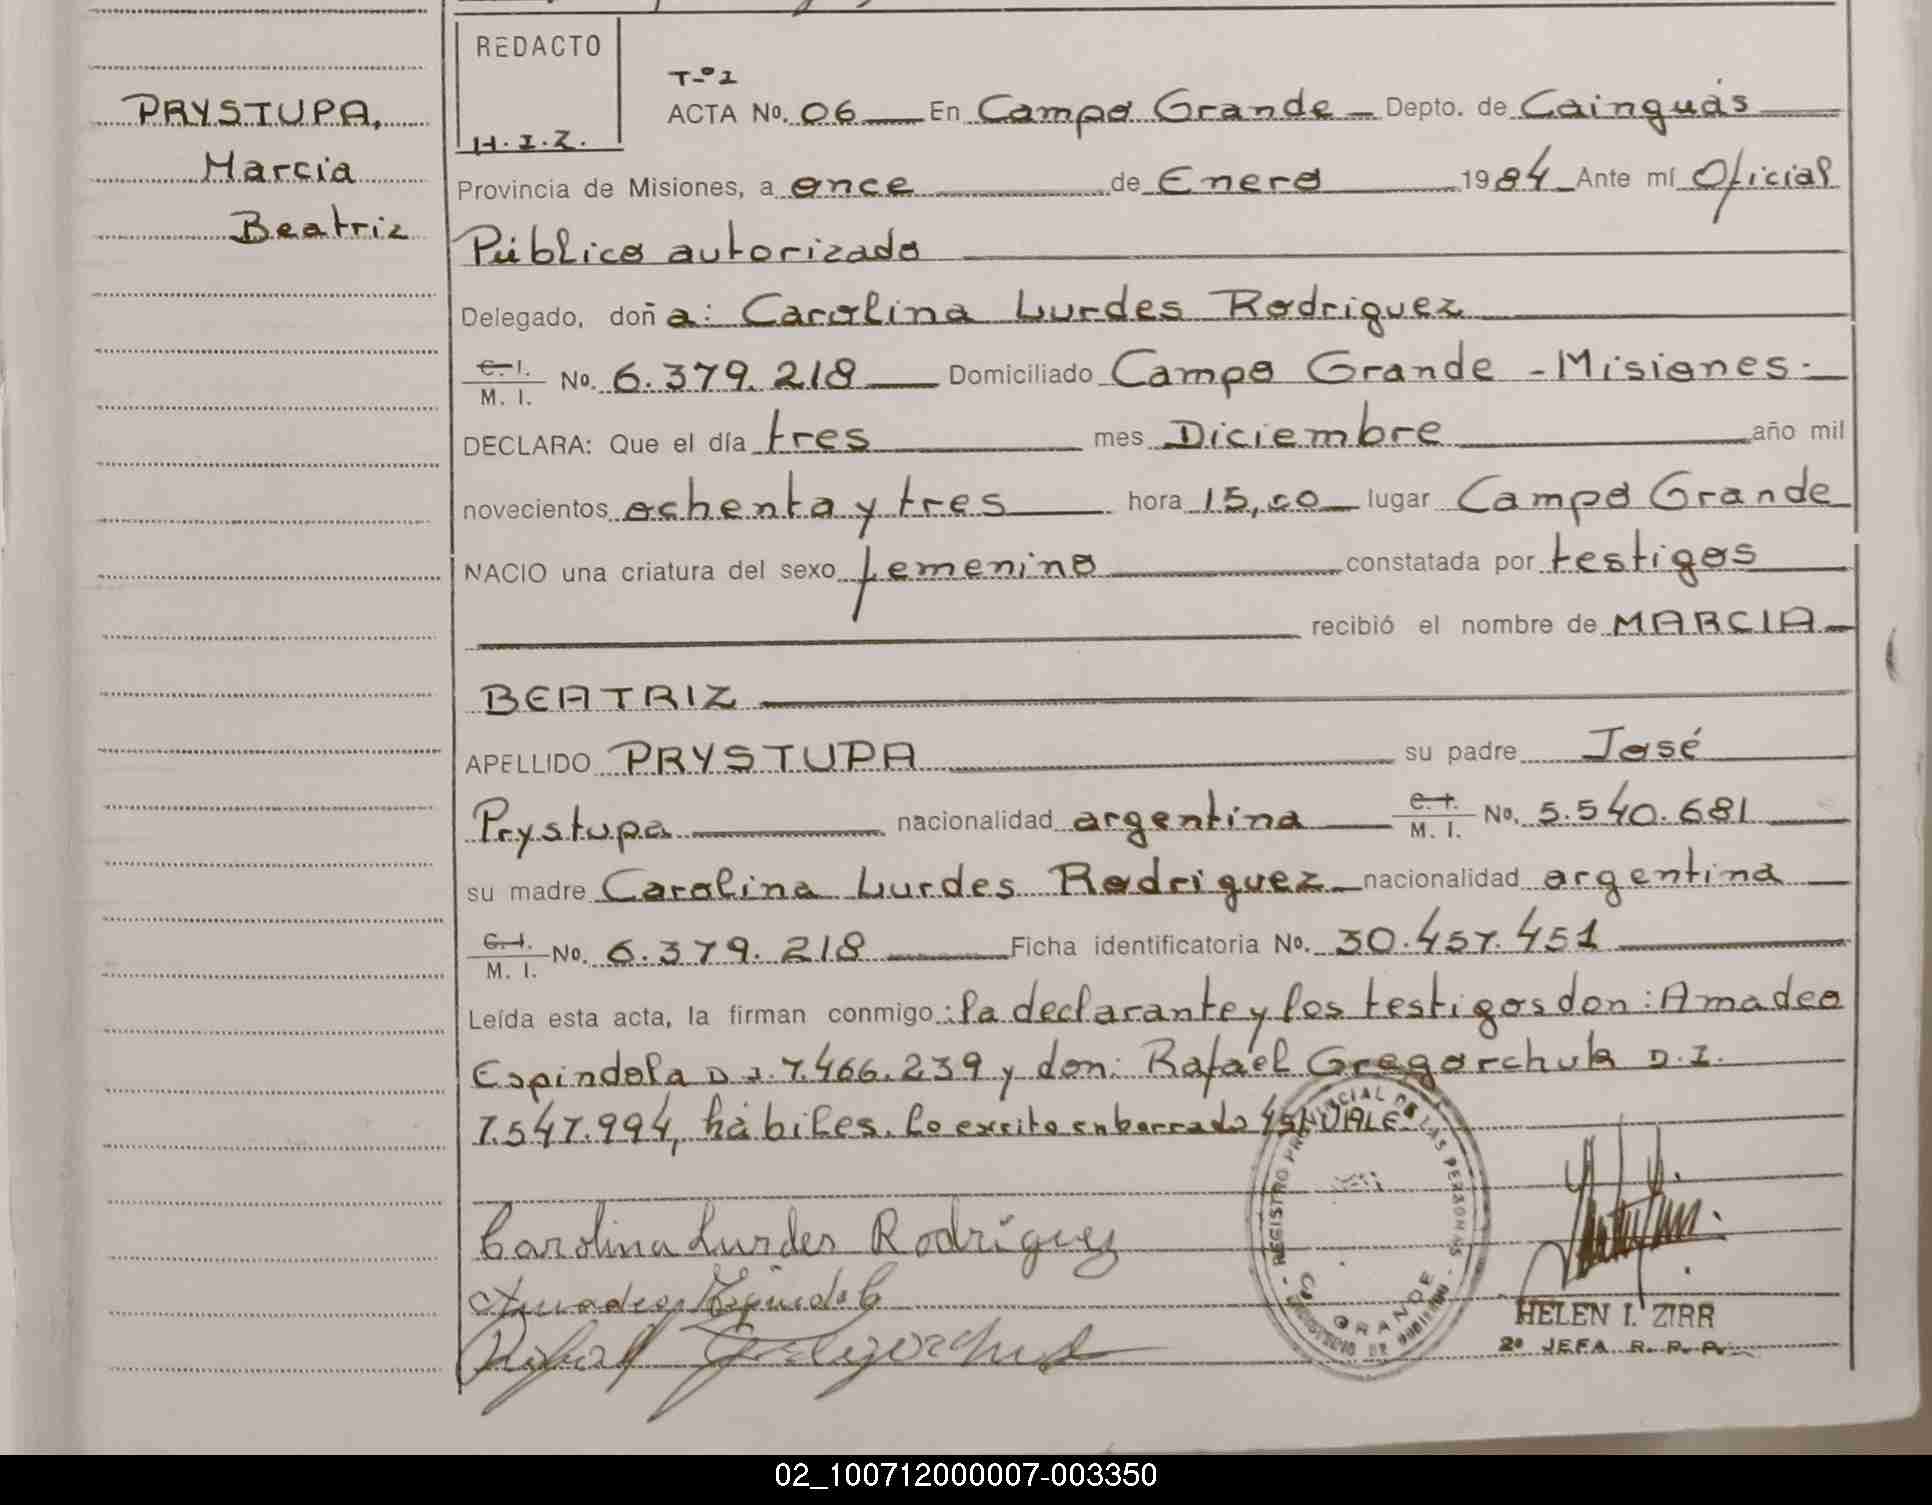 REDACTO
H. I. Z.
PRYSTUPA,
Marcia
Beatriz
T-º 1
ACTA No. 06 En Campo Grande Depto. de Cainguás
Provincia de Misiones, a once de Enero 1984 Ante mí Oficial
Público autorizado
Delegado, doña: Carolina Lurdes Rodriguez
C. I. / M. I. No. 6.379.218 Domiciliado Campo Grande - Misiones.
DECLARA: Que el día tres mes Diciembre año mil
novecientos ochenta y tres hora 15,00 lugar Campo Grande
NACIO una criatura del sexo femenino constatada por testigos
recibió el nombre de MARCIA
BEATRIZ
APELLIDO PRYSTUPA su padre José
Prystupa nacionalidad argentina C. I. / M. I. No. 5.540.681
su madre Carolina Lurdes Rodriguez nacionalidad argentina
C. I. / M. I. No. 6.379.218 Ficha identificatoria No. 30.457.451
Leída esta acta, la firman conmigo: la declarante y los testigos don: Amadeo
Espindola D I. 7.466.239 y don: Rafael Gregorchuk D. I.
7.547.994, hábiles. Lo escrito enborrado VALE.
Carolina Lurdes Rodríguez
Amadeo Espindola
Rafael Gregorchuk
- REGISTRO PROVINCIAL DE LAS PERSONAS -
GRANDE
HELEN I. ZIRR
2º JEFA R. P. P.
02_100712000007-003350